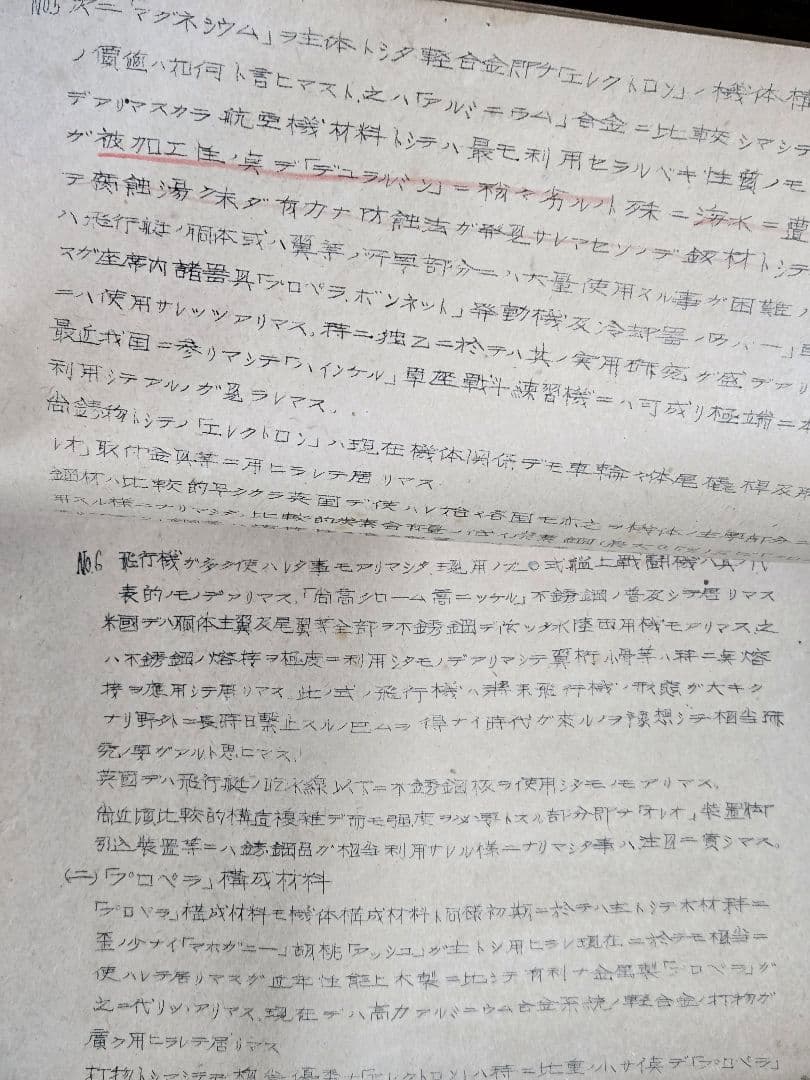 No.5 次ニ「マグネシウム」ヲ主体トシタ軽合金即チ「エレクトロン」ノ機体構
ノ價値ハ如何ト言ヒマスト、之ハ「アルミニウム」合金ニ比較シマシテ
デアリマスカラ航空機材料トシテハ最モ利用セラルベキ性質ノモ
ガ被加工性ノ点デ「デュラルミン」ニ稍々劣ルノト殊ニ海水ニ遭
テ腐蝕シ易ク未ダ有力ナ防蝕法ガ発見サレマセンノデ鋲材トシテ
ハ飛行艇ノ胴体或ハ翼等ノ所要部分ニハ大量使用スル事ガ困難ノ
マガ座席内諸器具「プロペラ、ボンネット」発動機及冷却器ノカバー」
ニハ使用サレツツアリマス。特ニ独乙ニ於テハ其ノ実用研究ガ盛デアリ
最近我国ニ参リマシテ「ハインケル」単座戦斗練習機ニハ可成リ極端ニ本
利用シテアルノガ見ラレマス。
尚鋳物トシテノ「エレクトロン」ハ現在機体関係デモ車輪や体尾橇桿及
レオ」取付金具等ニ用ヒラレテ居リマス
鋼材ハ比較的早クカラ英国デ使ハレ始メ各国モ亦之ヲ機体ノ主要部分ニ
用スル様ニナリマシタ。比較的炭素含有量ノ
No.6 飛行機ガ多々使ハレタ事モアリマシタ、現用ノ九〇式艦上戦闘機ハ其ノ代
表的ノモノデアリマス。「尚高クローム高ニッケル」不銹鋼ノ普及シテ居リマス
米國デハ胴体主翼及尾翼等全部ヲ不銹鋼デ造ッタ水陸両用機モアリマス、之
ハ不銹鋼ノ熔接ヲ極度ニ利用シタモノデアリマシテ翼桁小骨等ハ特ニ点熔
接ヲ應用シテ居リマス 此ノ式ノ飛行機ハ将来飛行機ノ形態ガ大キク
ナリ野外ニ長時日繋止スルノ已ムヲ得ナイ時代ガ来ルノヲ豫想シテ相当研
究ノ要ガアルト思ヒマス。
英國デハ飛行艇ノ吃水線以下ニ不銹鋼板ヲ使用シタモノモアリマス。
尚近頃比較的構造複雑デ而モ強度ヲ必要トスル部分即チ「オレオ」装置脚
引込装置等ニハ銹鋼品ガ相当利用サレル様ニナリマシタ事ハ注目ニ價シマス。
(二)「プロペラ」構成材料
「プロペラ」構成材料モ機体構成材料ト同様初期ニ於テハ主トシテ木材特ニ
歪ノ少ナイ「マホガニー」胡桃「アッシュ」ガ主トシ用ヒラレ現在ニ於テモ相当ニ
使ハレテ居リマスガ近年性能上木製ニ比シテ有利ナ金属製「プロペラ」ガ
之ニ代リツヽアリマス、現在デハ高力アルミニウム合金系統ノ軽合金ノ打物ガ
廣ク用ヒラレテ居リマス
打物トシマシテ「エレクトロン」ハ特ニ比重ノ小サイ点デ「プロペラ」